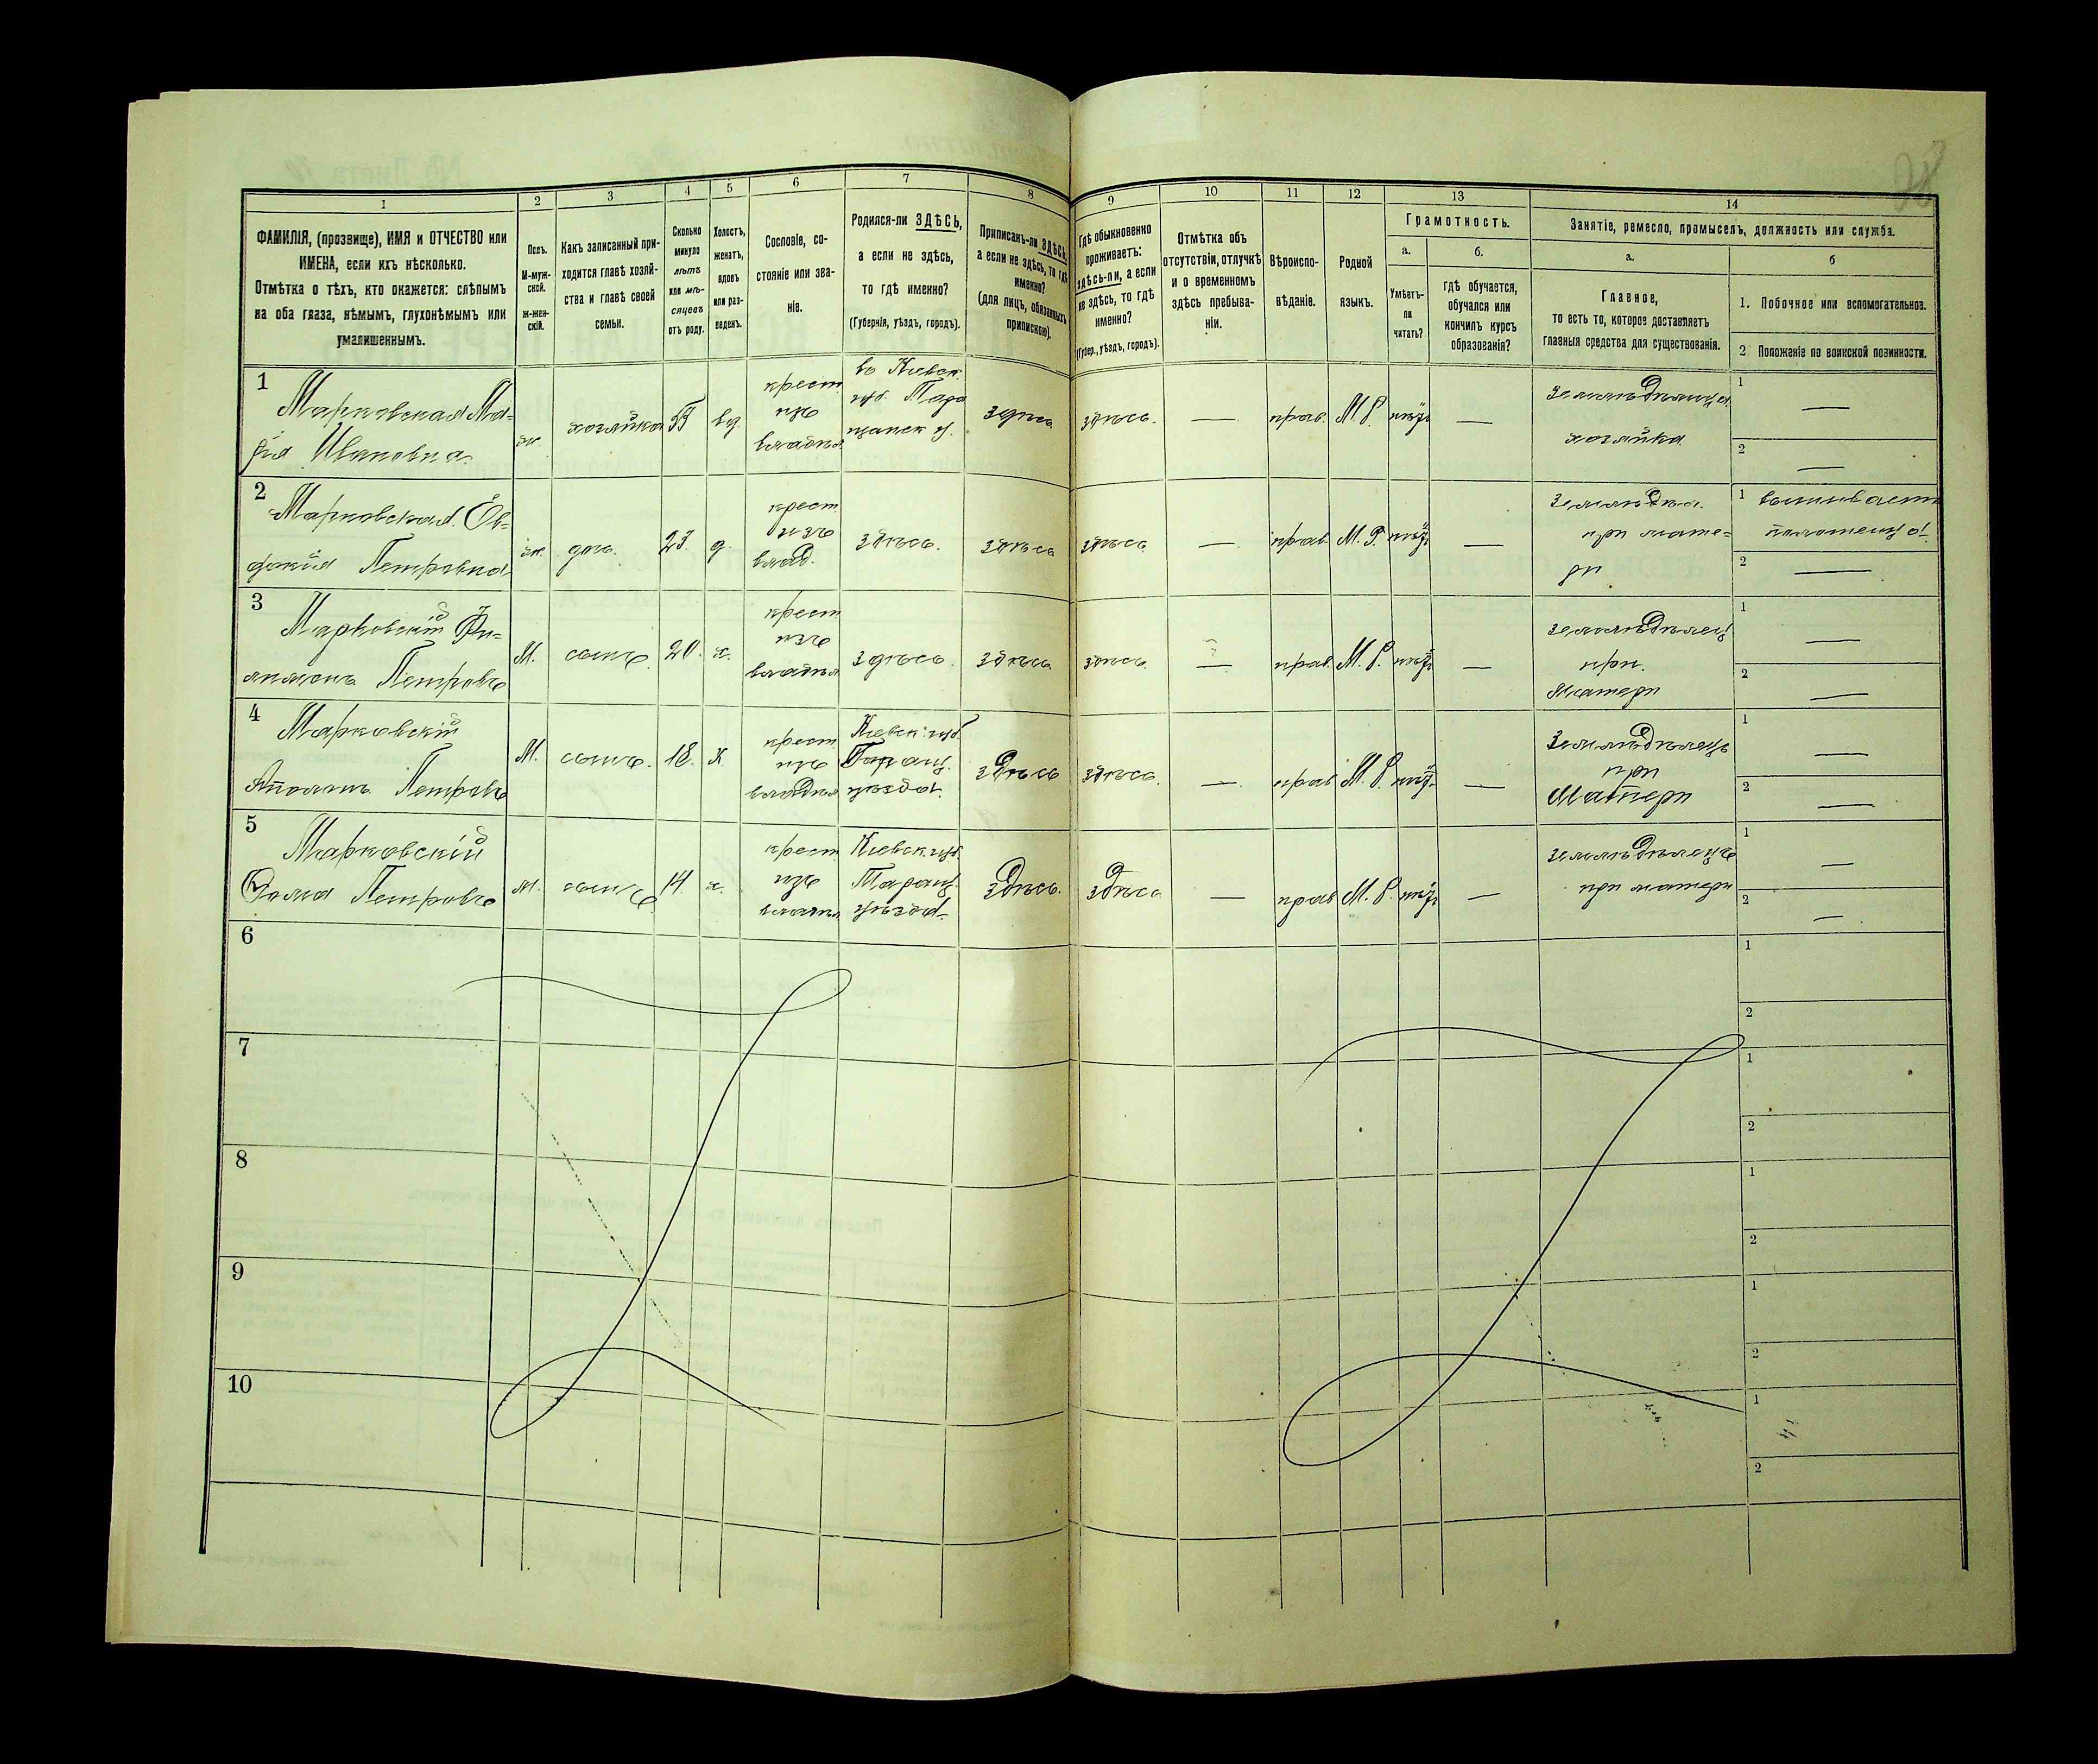 1 2 3 4 5 6 7 8 9 10 11 12 13 14
ФАМИЛІЯ, (прозвище), ИМЯ и ОТЧЕСТВО или
ИМЕНА, если ихъ нѣсколько.
Отмѣтка о тѣхъ, кто окажется: слѣпымъ
на оба глаза, нѣмымъ, глухонѣмымъ или
умалишеннымъ.
Полъ.
М-муж-
ской.
ж-жен-
скій.
Какъ записанный при-
ходится главѣ хозяй-
ства и главѣ своей
семьи.
Сколько
минуло
лѣтъ
или мѣ-
сяцевъ
отъ роду.
Холостъ,
женатъ,
вдовъ
или раз-
веденъ.
Сословіе, со-
стояніе или зва-
ніе.
Родился-ли ЗДѢСЬ,
а если не здѣсь,
то гдѣ именно?
(Губернія, уѣздъ, городъ).
Приписанъ-ли ЗДѢСЬ,
а если не здѣсь, то гдѣ
именно?
(для лицъ, обязанныхъ
припискою).
Гдѣ обыкновенно
проживаетъ:
здѣсь-ли, а если
не здѣсь, то гдѣ
именно?
(Губер., уѣздъ, городъ).
Отмѣтка объ
отсутствіи, отлучкѣ
и о временномъ
здѣсь пребыва-
ніи.
Вѣроиспо-
вѣданіе.
Родной
языкъ.
Грамотность.
а.
Умѣетъ-
ли
читать?
б.
гдѣ обучается,
обучался или
кончилъ курсъ
образованія?
Занятіе, ремесло, промыселъ, должность или служба.
а.
Главное,
то есть то, которое доставляетъ
главныя средства для существованія.
б
1. Побочное или вспомогательное.
2 Положеніе по воинской повинности.
1
Марковская Ма-
рія Ивановна
ж.
хозяйка
вд.
крест
изъ
владѣл
въ Кіевск.
губ. Тара
щанск у.
здѣсь
здѣсь.
—
прав.
М. Р.
—
хозяйка
1 —
2 —
2
Марковская Ев-
докія Петровна
ж.
доч.
23.
д.
крест
изъ
влад.
здѣсь.
здѣсь
здѣсь
—
прав.
М. Р.
—
при мате-
ри
1 вышиваетъ
полотенца
2 —
3
Марковскій Фи-
лимонъ Петровъ
М.
сынъ.
20.
х.
крест
изъ
владѣл
здѣсь.
здѣсь
здѣсь.
—
прав.
М. Р.
—
земледѣлецъ
при
матери
1 —
2 —
4
Марковскій
Петровъ
М.
сынъ.
18.
х
крест
изъ
владѣл
Кіевск. губ.
Таращ.
уѣзда.
здѣсь
здѣсь.
—
прав
М. Р.
—
земледѣлецъ
при
матери
1 —
2 —
5
Марковскій
Фома Петровъ
м.
сынъ
14.
х.
крест
изъ
владѣл
Кіевск. губ.
Таращ.
уѣзда.
здѣсь.
здѣсь
—
прав
М. Р.
—
земледѣлецъ
при матери
1 —
2 —
6
1
2
7
1
2
8
1
2
9
1
2
10
1
2